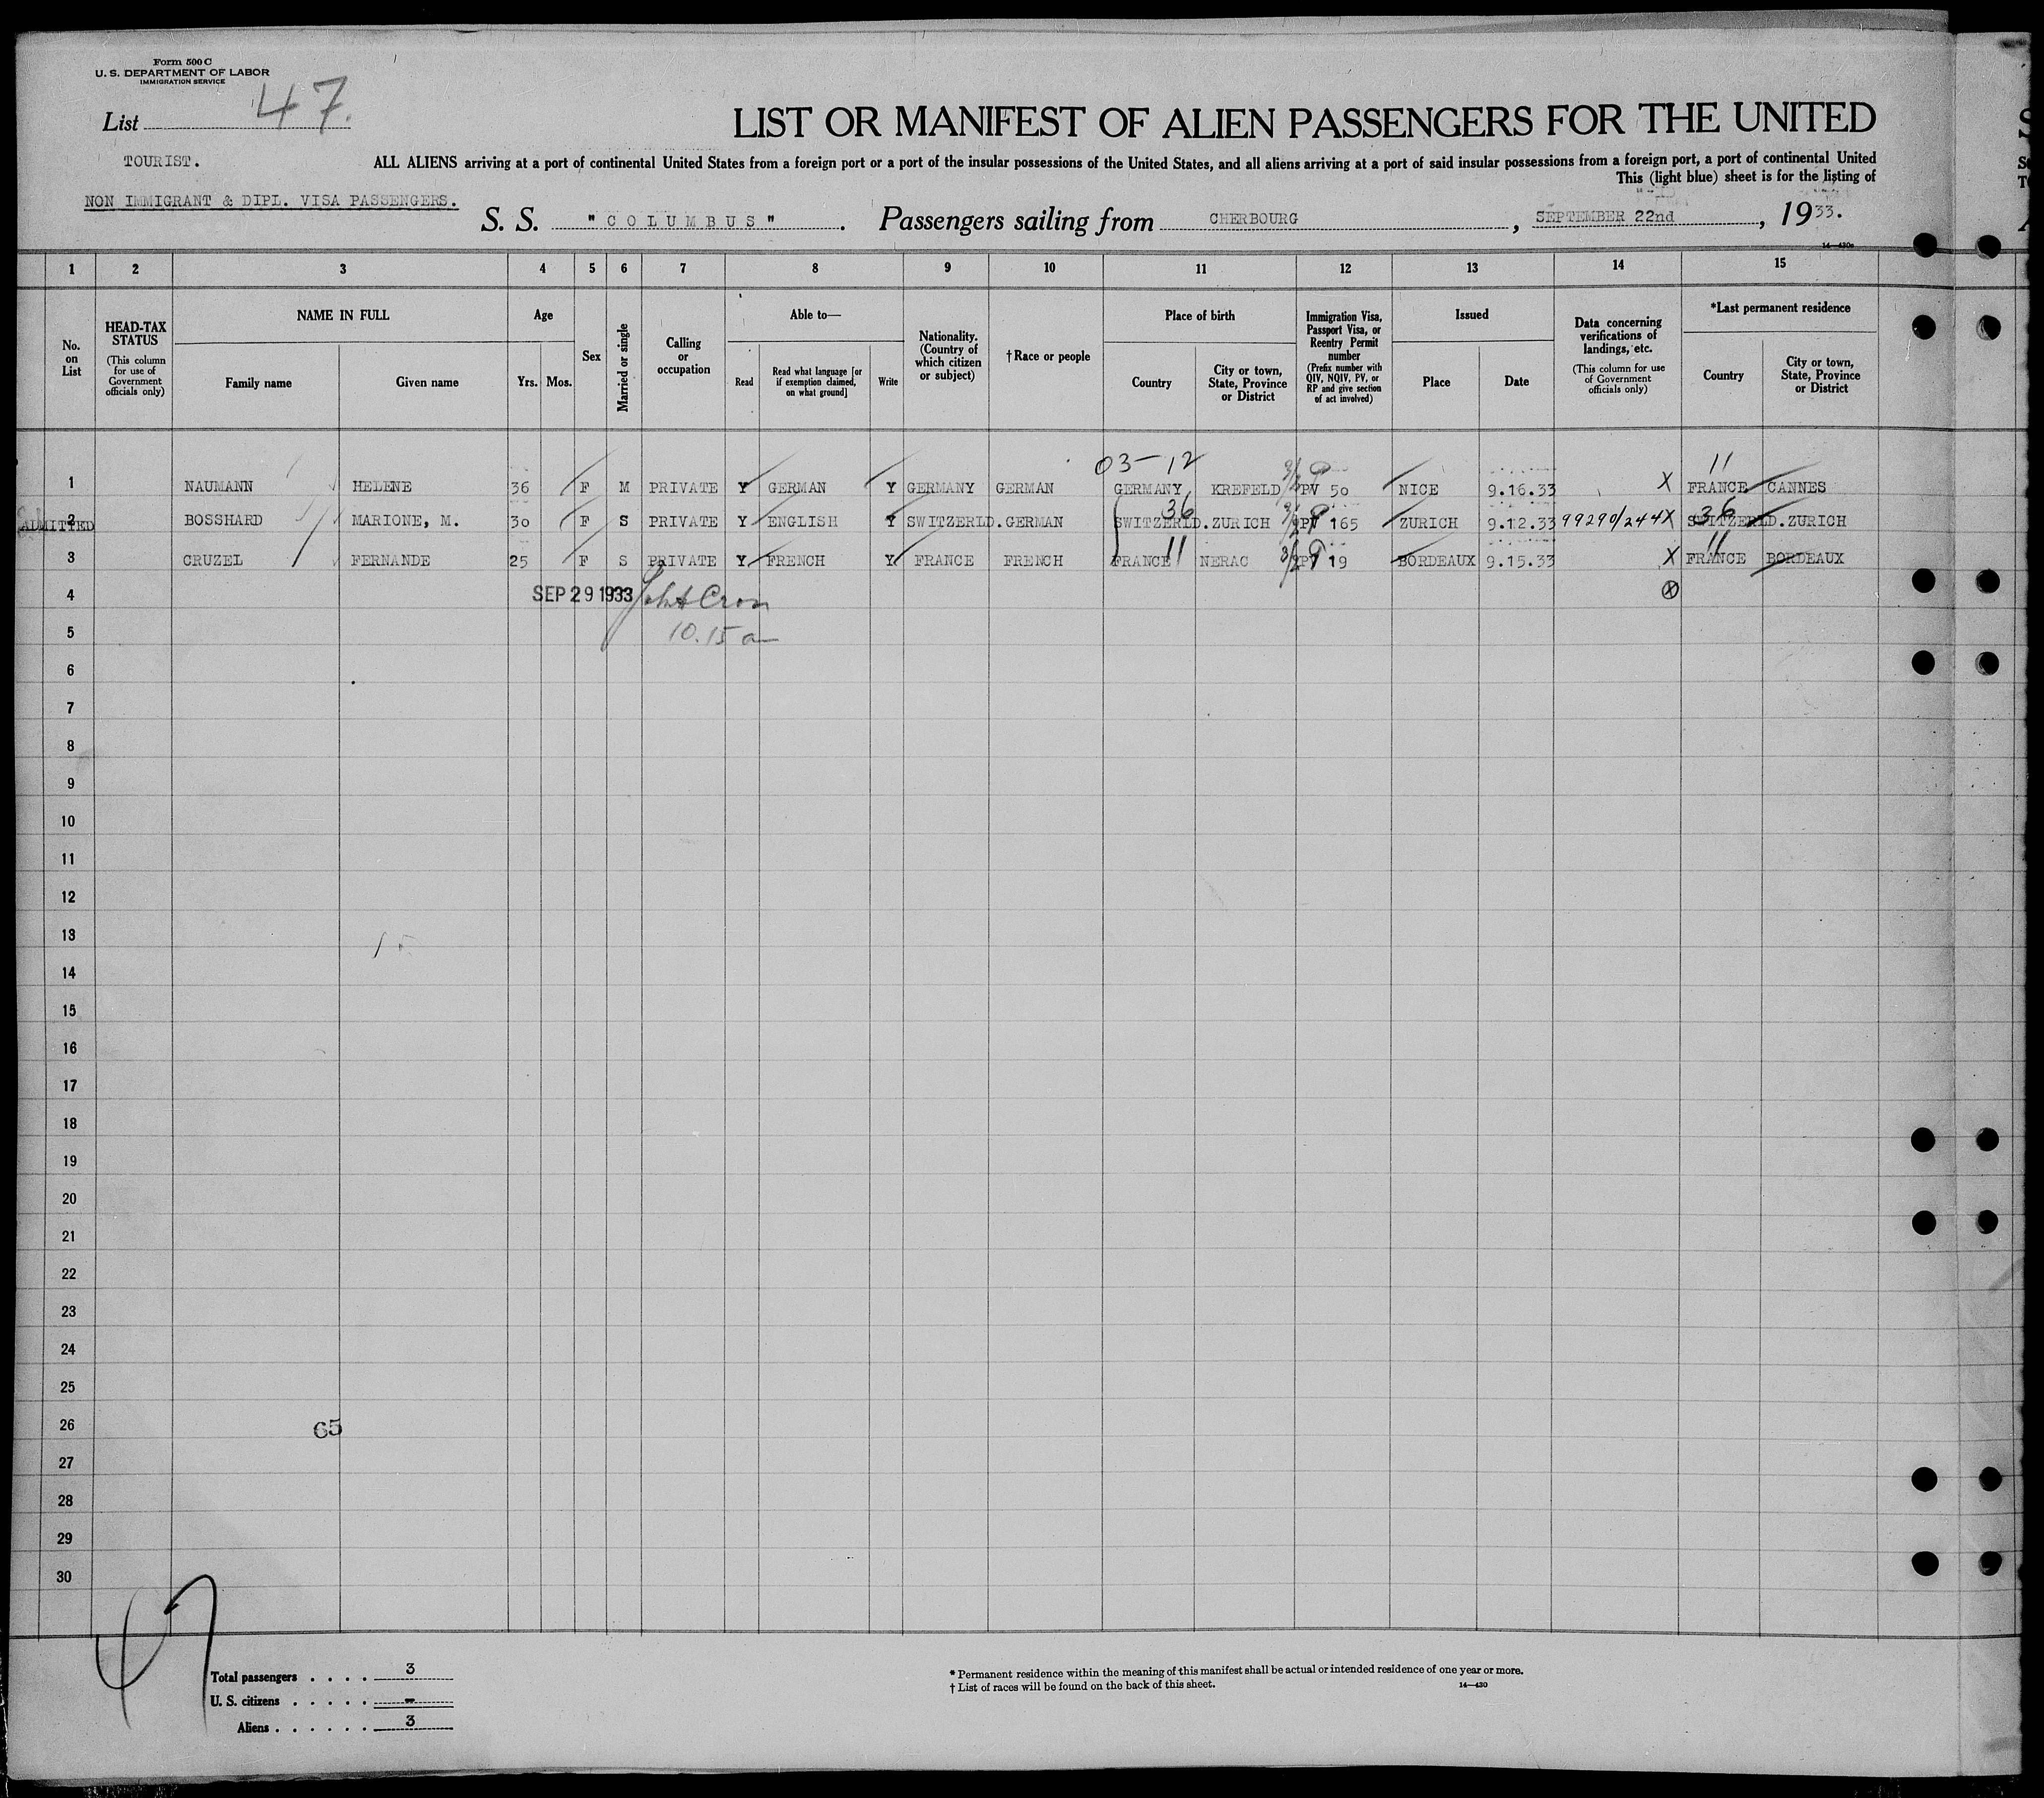 Form 500 C
U. S. DEPARTMENT OF LABOR
IMMIGRATION SERVICE
List 47.
LIST OR MANIFEST OF ALIEN PASSENGERS FOR THE UNITED
TOURIST.
ALL ALIENS arriving at a port of continental United States from a foreign port or a port of the insular possessions of the United States, and all aliens arriving at a port of said insular possessions from a foreign port, a port of continental United
This (light blue) sheet is for the listing of
NON IMMIGRANT & DIPL. VISA PASSENGERS.
S. S. "COLUMBUS". Passengers sailing from CHERBOURG, SEPTEMBER 22nd, 1933.
14—430a
1 2 3 4 5 6 7 8 9 10 11 12 13 14 15
No. on List
HEAD-TAX STATUS (This column for use of Government officials only)
NAME IN FULL
Family name Given name
Age
Yrs. Mos.
Sex
Married or single
Calling or occupation
Able to—
Read Read what language [or if exemption claimed, on what ground] Write
Nationality. (Country of which citizen or subject)
†Race or people
Place of birth
Country City or town, State, Province or District
Immigration Visa, Passport Visa, or Reentry Permit number (Prefix number with QIV, NQIV, PV, or RP and give section of act involved)
Issued
Place Date
Data concerning verifications of landings, etc. (This column for use of Government officials only)
*Last permanent residence
Country City or town, State, Province or District
03-12 11
1 NAUMANN HELENE 36 F M PRIVATE Y GERMAN Y GERMANY GERMAN GERMANY KREFELD 3/2 PV 50 NICE 9.16.33 X FRANCE CANNES
36 36
ADMITTED 2 BOSSHARD MARIONE, M. 30 F S PRIVATE Y ENGLISH Y SWITZERLD. GERMAN SWITZERLD. ZURICH 3/2 PV 165 ZURICH 9.12.33 99290/244 X SWITZERLD. ZURICH
11 11
3 CRUZEL FERNANDE 25 F S PRIVATE Y FRENCH Y FRANCE FRENCH FRANCE NERAC 3/2 PV 19 BORDEAUX 9.15.33 X FRANCE BORDEAUX
4 SEP 29 1933 X
5 10.15 a
6
7
8
9
10
11
12
13
14
15
16
17
18
19
20
21
22
23
24
25
26 65
27
28
29
30
Total passengers . . . . 3
U. S. citizens . . . . . -
Aliens . . . . . . 3
* Permanent residence within the meaning of this manifest shall be actual or intended residence of one year or more.
† List of races will be found on the back of this sheet. 14—430